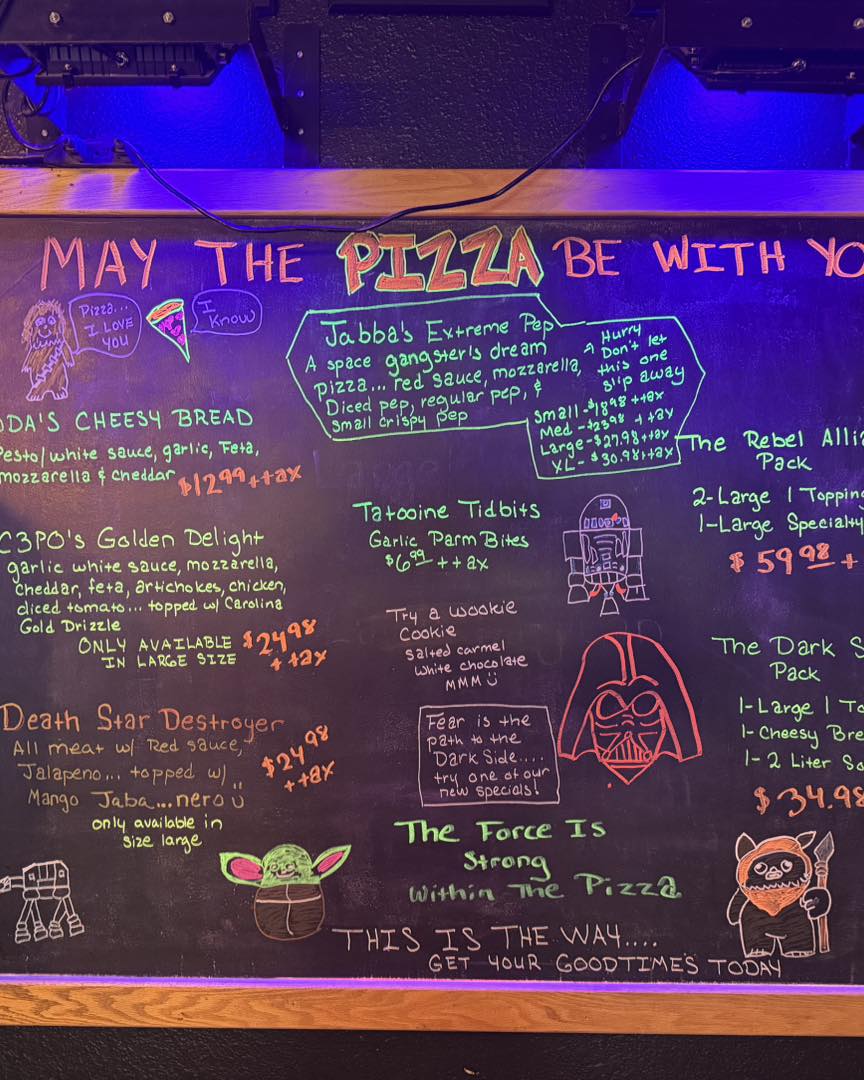 MAY THE PIZZA BE WITH YO
Pizza...
I LOVE
YOU
I
Know
Jabba's Extreme Pep
A space gangster's dream
pizza... red sauce, mozzarella,
Diced pep, regular pep, &
small crispy pep
Hurry
Don't let
this one
slip away
Small-$18.98++ax
Med-$23.98 ++ax
Large-$27.98++ax
XL- $30.98++ax
ODA'S CHEESY BREAD
Pesto/white sauce, garlic, Feta,
mozzarella & cheddar $12.99++ax
C3PO's Golden Delight
garlic white sauce, mozzarella,
cheddar, feta, artichokes, chicken,
diced tomato... topped w/ Carolina
Gold Drizzle
ONLY AVAILABLE
IN LARGE SIZE
$24.98
++ax
Death Star Destroyer
All meat w/ Red sauce,
Jalapeno... topped w/
Mango Jaba...nero
only available in
size large
$24.98
++ax
Tatooine Tidbits
Garlic Parm Bites
$6.99 ++ax
Try a wookie
Cookie
salted carmel
white chocolate
MMM
Fear is the
path to the
Dark Side....
try one of our
new specials!
The Force Is
Strong
Within The Pizza
THIS IS THE WAY....
GET YOUR GOODTIMES TODAY
The Rebel Allia
Pack
2-Large 1 Topping
1-Large Specialty
$59.98 +
The Dark S
Pack
1-Large 1 To
1-Cheesy Bre
1-2 Liter So
$34.98